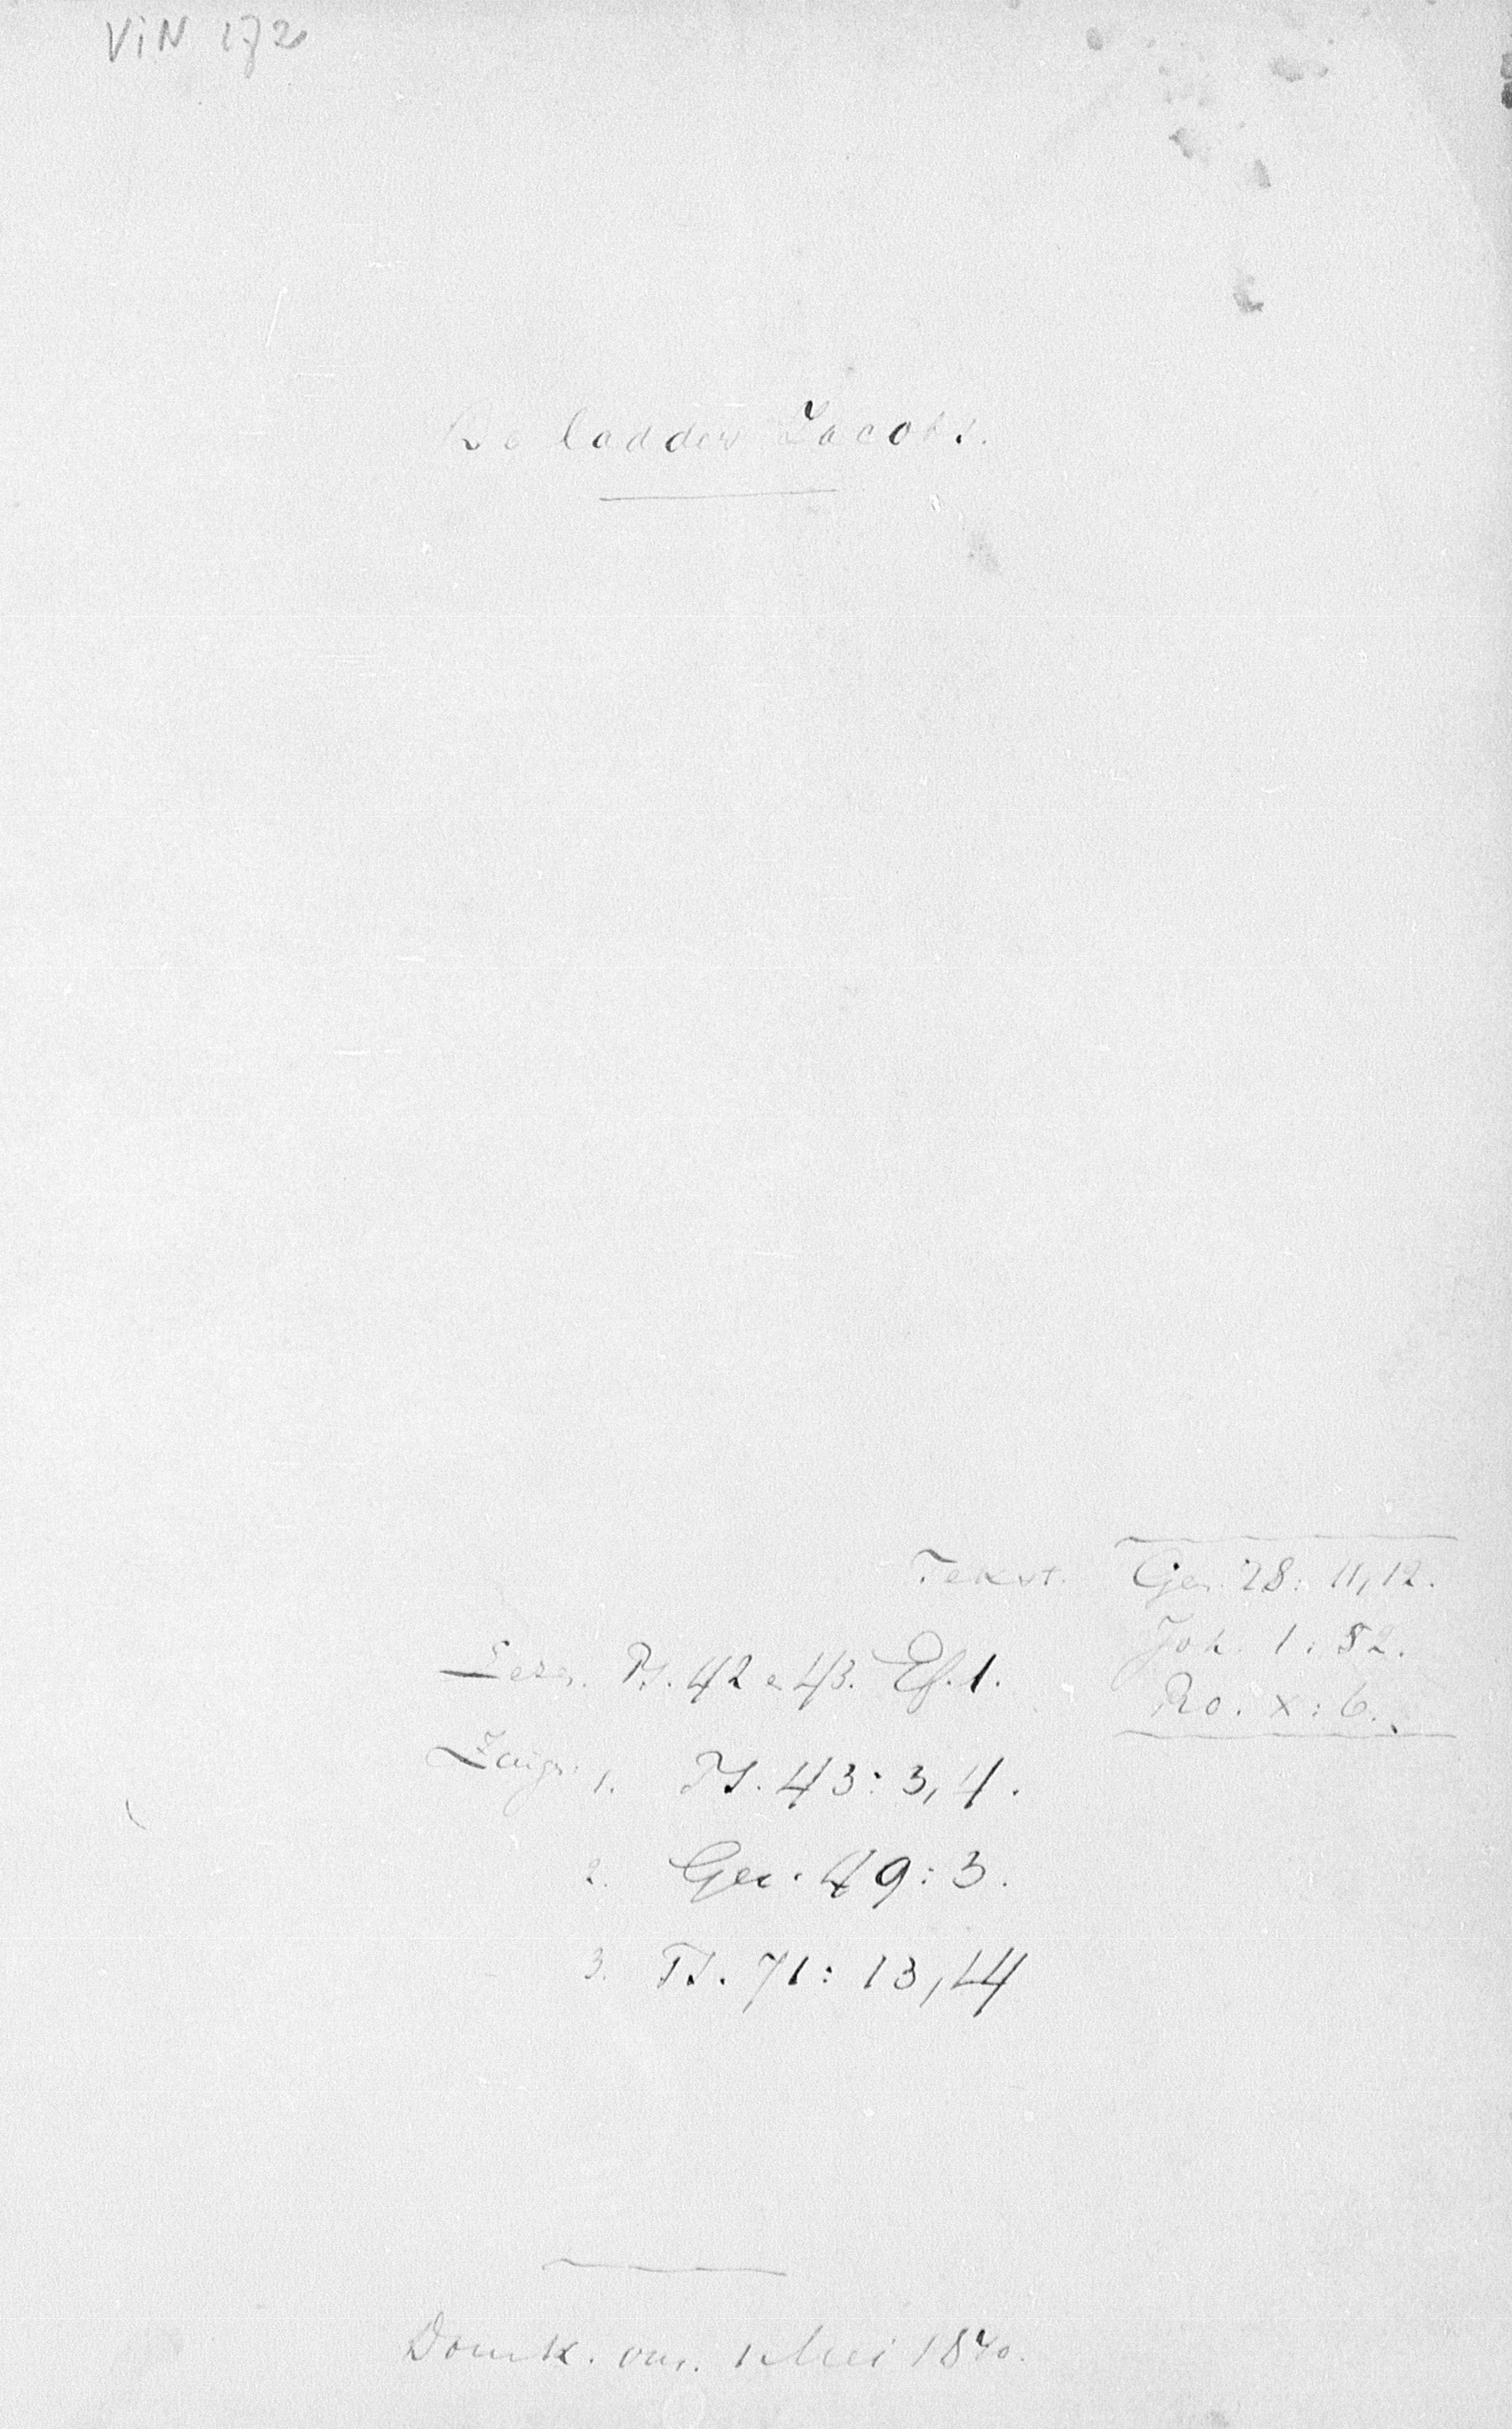 ViN 172
De ladder Jacobs.
Tekst. Gen. 28: 11, 12.
Joh. 1: 52.
Ro. X: 6.
Lezen. Ps. 42 en 43. Ef. 1.
Zang: 1. Ps. 43: 3, 4.
2. Gez. 49: 3.
3. Ps. 71: 13, 14
Domk. 1 Mei 1870.